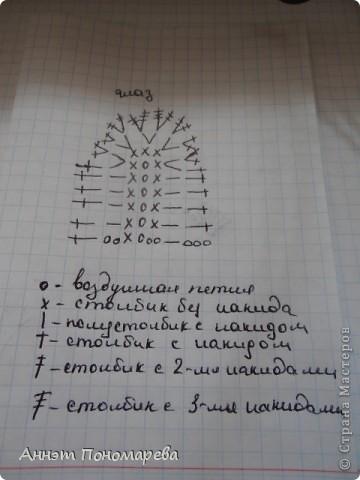 глаз
о - воздушная петля
х - столбик без накида
| - полустолбик с накидом
† - столбик с накидом
Ŧ - столбик с 2-мя накидами
Ŧ - столбик с 3-мя накидами
Аннэт Пономарева
© Страна Мастеров